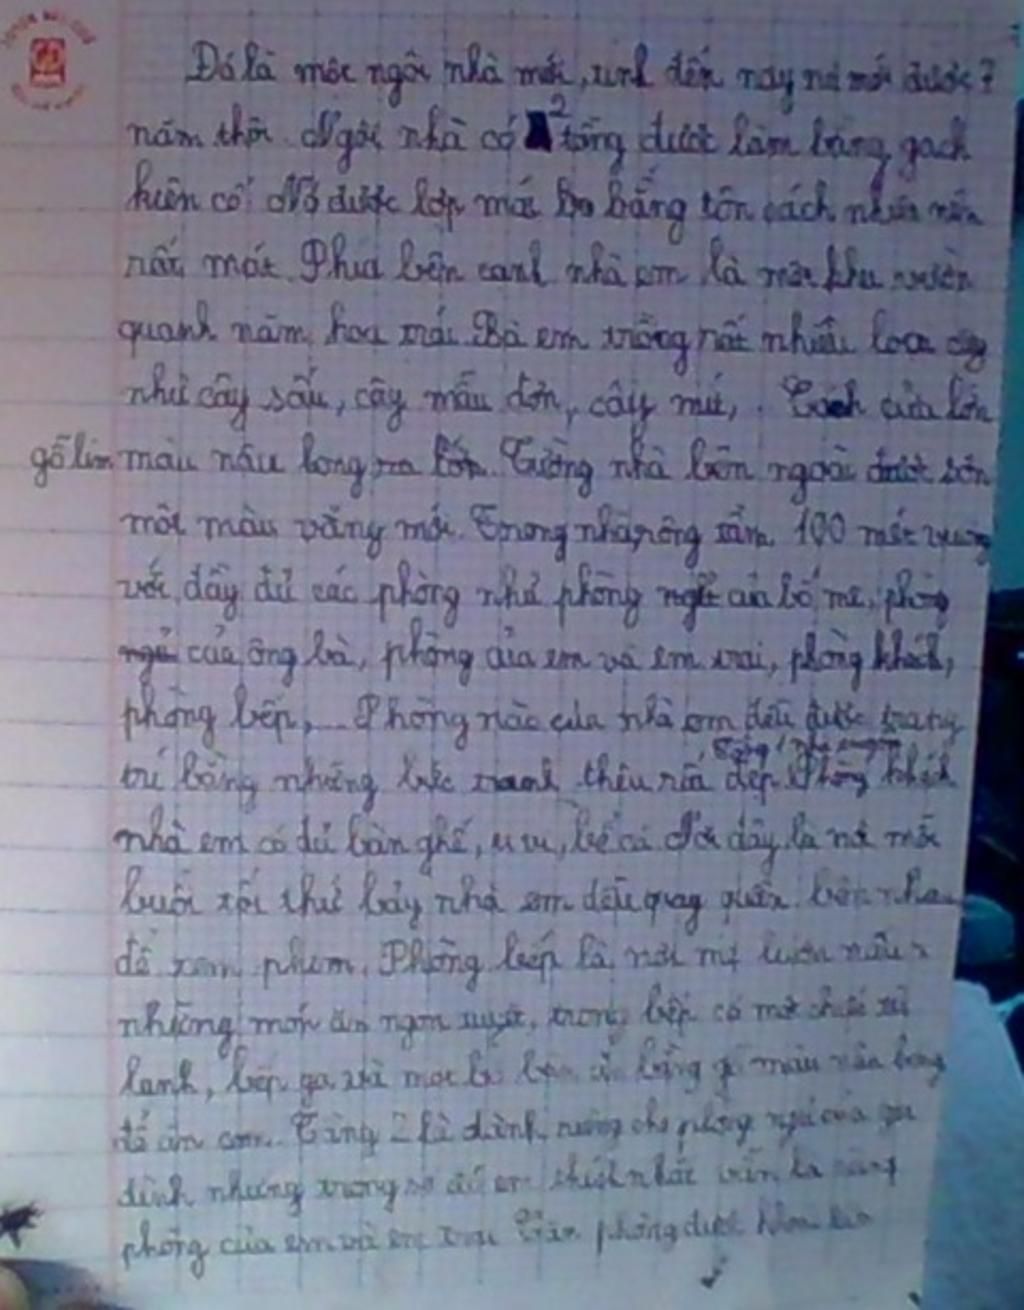 Đó là một ngôi nhà mới, tính đến nay nó mới được 7
năm thôi. Ngôi nhà có 2 tầng được làm bằng gạch
kiên cố. Nó được lợp mái bằng tôn cách nhiệt nên
rất mát. Phía bên cạnh nhà em là một khu vườn
quanh năm hoa trái. Bà em trồng rất nhiều loại cây
như cây sấu, cây mẫu đơn, cây mít, . Cách cửa lớn
gỗ lim màu nâu bóng. Tường nhà bên ngoài được sơn
một màu vàng mới. Trong nhà rộng tầm 100 mét vuông
với đầy đủ các phòng như phòng ngủ của bố mẹ, phòng
của ông bà, phòng của em và em trai, phòng khách,
phòng bếp,... Phòng nào của nhà em đều được trang
trí bằng những bức tranh thêu rất đẹp. Phòng khách
nhà em có đủ bàn ghế, ti vi, bể cá. Nơi đây là nơi mỗi
buổi tối thứ bảy nhà em đều quay quần bên nhau
để xem phim. Phòng bếp là nơi mẹ luôn nấu
những món ăn ngon tuyệt, trong bếp có một chiếc tủ
lạnh, bếp ga và một bộ bàn ăn bằng gỗ màu nâu bóng
để ăn cơm. Tầng 2 là dành riêng cho phòng ngủ của gia
đình nhưng trong số đó em thích nhất vẫn là căn
phòng của em và em trai. Căn phòng được